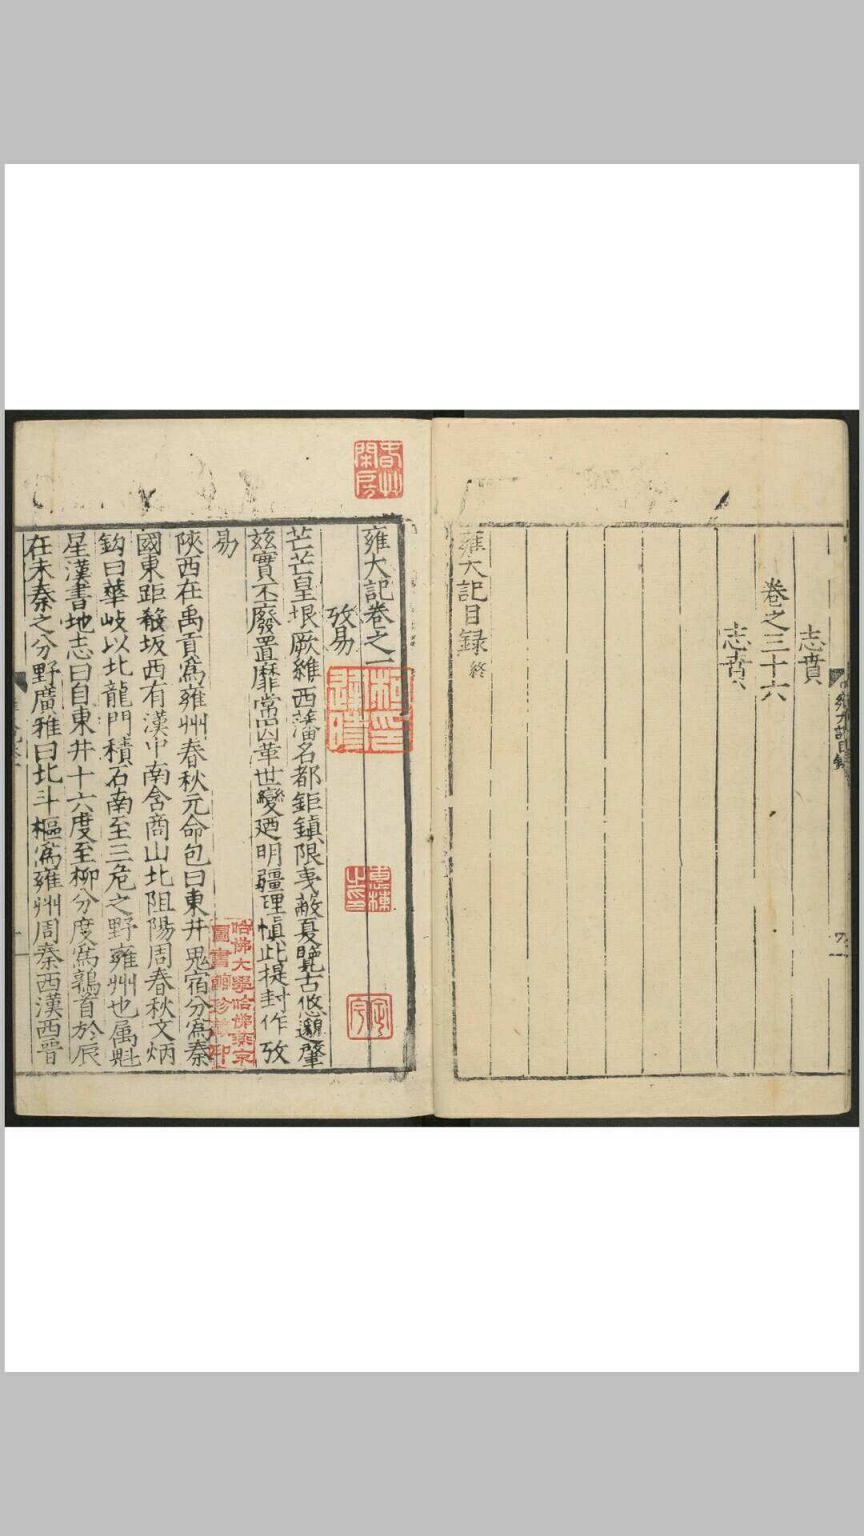 志賁
卷之三十六
志賁
雍大記目録終
雍大記卷之一
攷易
芒芒皇垠厥維西藩名都鉅鎮限夷蔽夏曠古悠邈肇
茲實丕廢置靡常因革世變廼明疆理慎此提封作攷
易
陝西在禹貢為雍州春秋元命包曰東井鬼宿分為秦
國東距殽坂西有漢中南含商山北阻陽周春秋文炳
鈎曰華岐以北龍門積石南至三危之野雍州也属魁
星漢書地志曰自東井十六度至柳分度為鶉首於辰
在未秦之分野廣雅曰北斗樞為雍州周秦西漢西晉
哈佛大學哈佛燕京
圖書館珍藏印